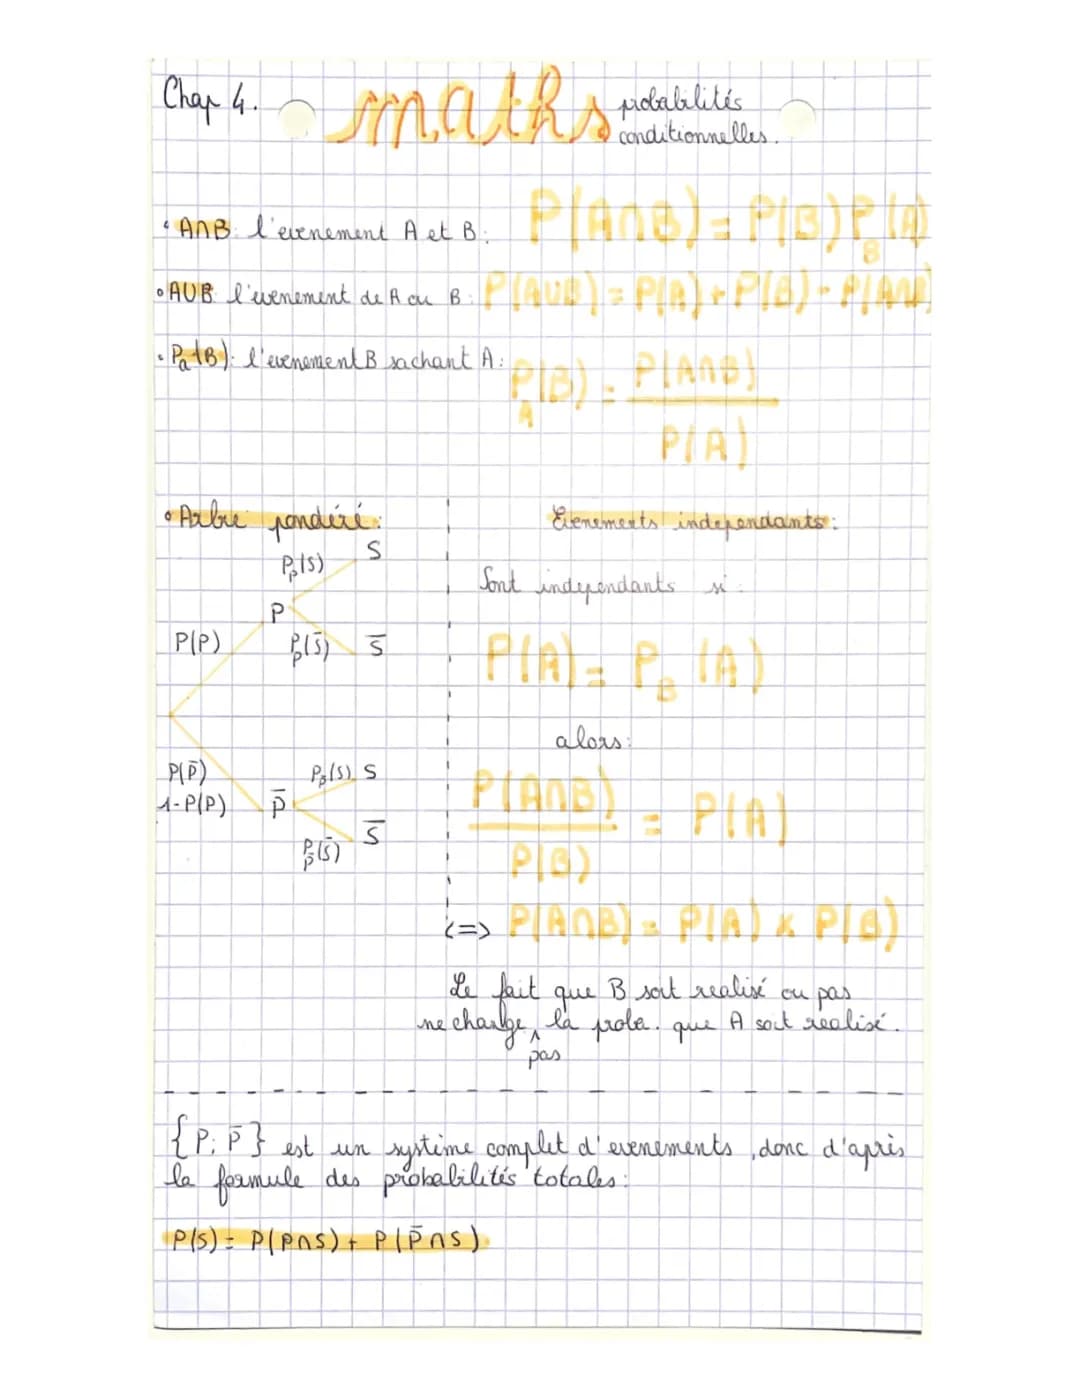 Chap 4. maths probabilités
conditionnelles.
• A∩B: l'evenement A et B: P(A∩B) = P(B)P_B(A)
• AUB: l'evenement de A ou B: P(AUB) = P(A) + P(B) - P(A∩B)
• P_a(B): l'evenement B sachant A: P_A(B) = P(A∩B) / P(A)
• Arbre pondéré:
S
P_p(S)
P
P(P)
P_p(S̄) S̄
P(P̄)
1-P(P)
P̄
P_p̄(S) S
P_p̄(S̄) S̄
Evenements independants:
Sont independants si:
P(A) = P_B(A)
alors:
P(A∩B) / P(B) = P(A)
<=> P(A∩B) = P(A) x P(B)
Le fait que B soit realisé ou pas
ne change pas la proba. que A soit realisé.
{P; P̄} est un système complet d'evenements, donc d'après
la formule des probabilités totales:
P(S) = P(P∩S) + P(P̄∩S)